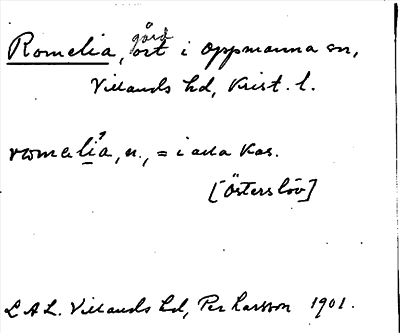 Romelia, gård ort i Oppmanna sn,
Villands hd, Krist. l.
romelia, n., = i alla kas.
[Österslöv]
L.A.L. Villands hd, Per Larsson 1901.